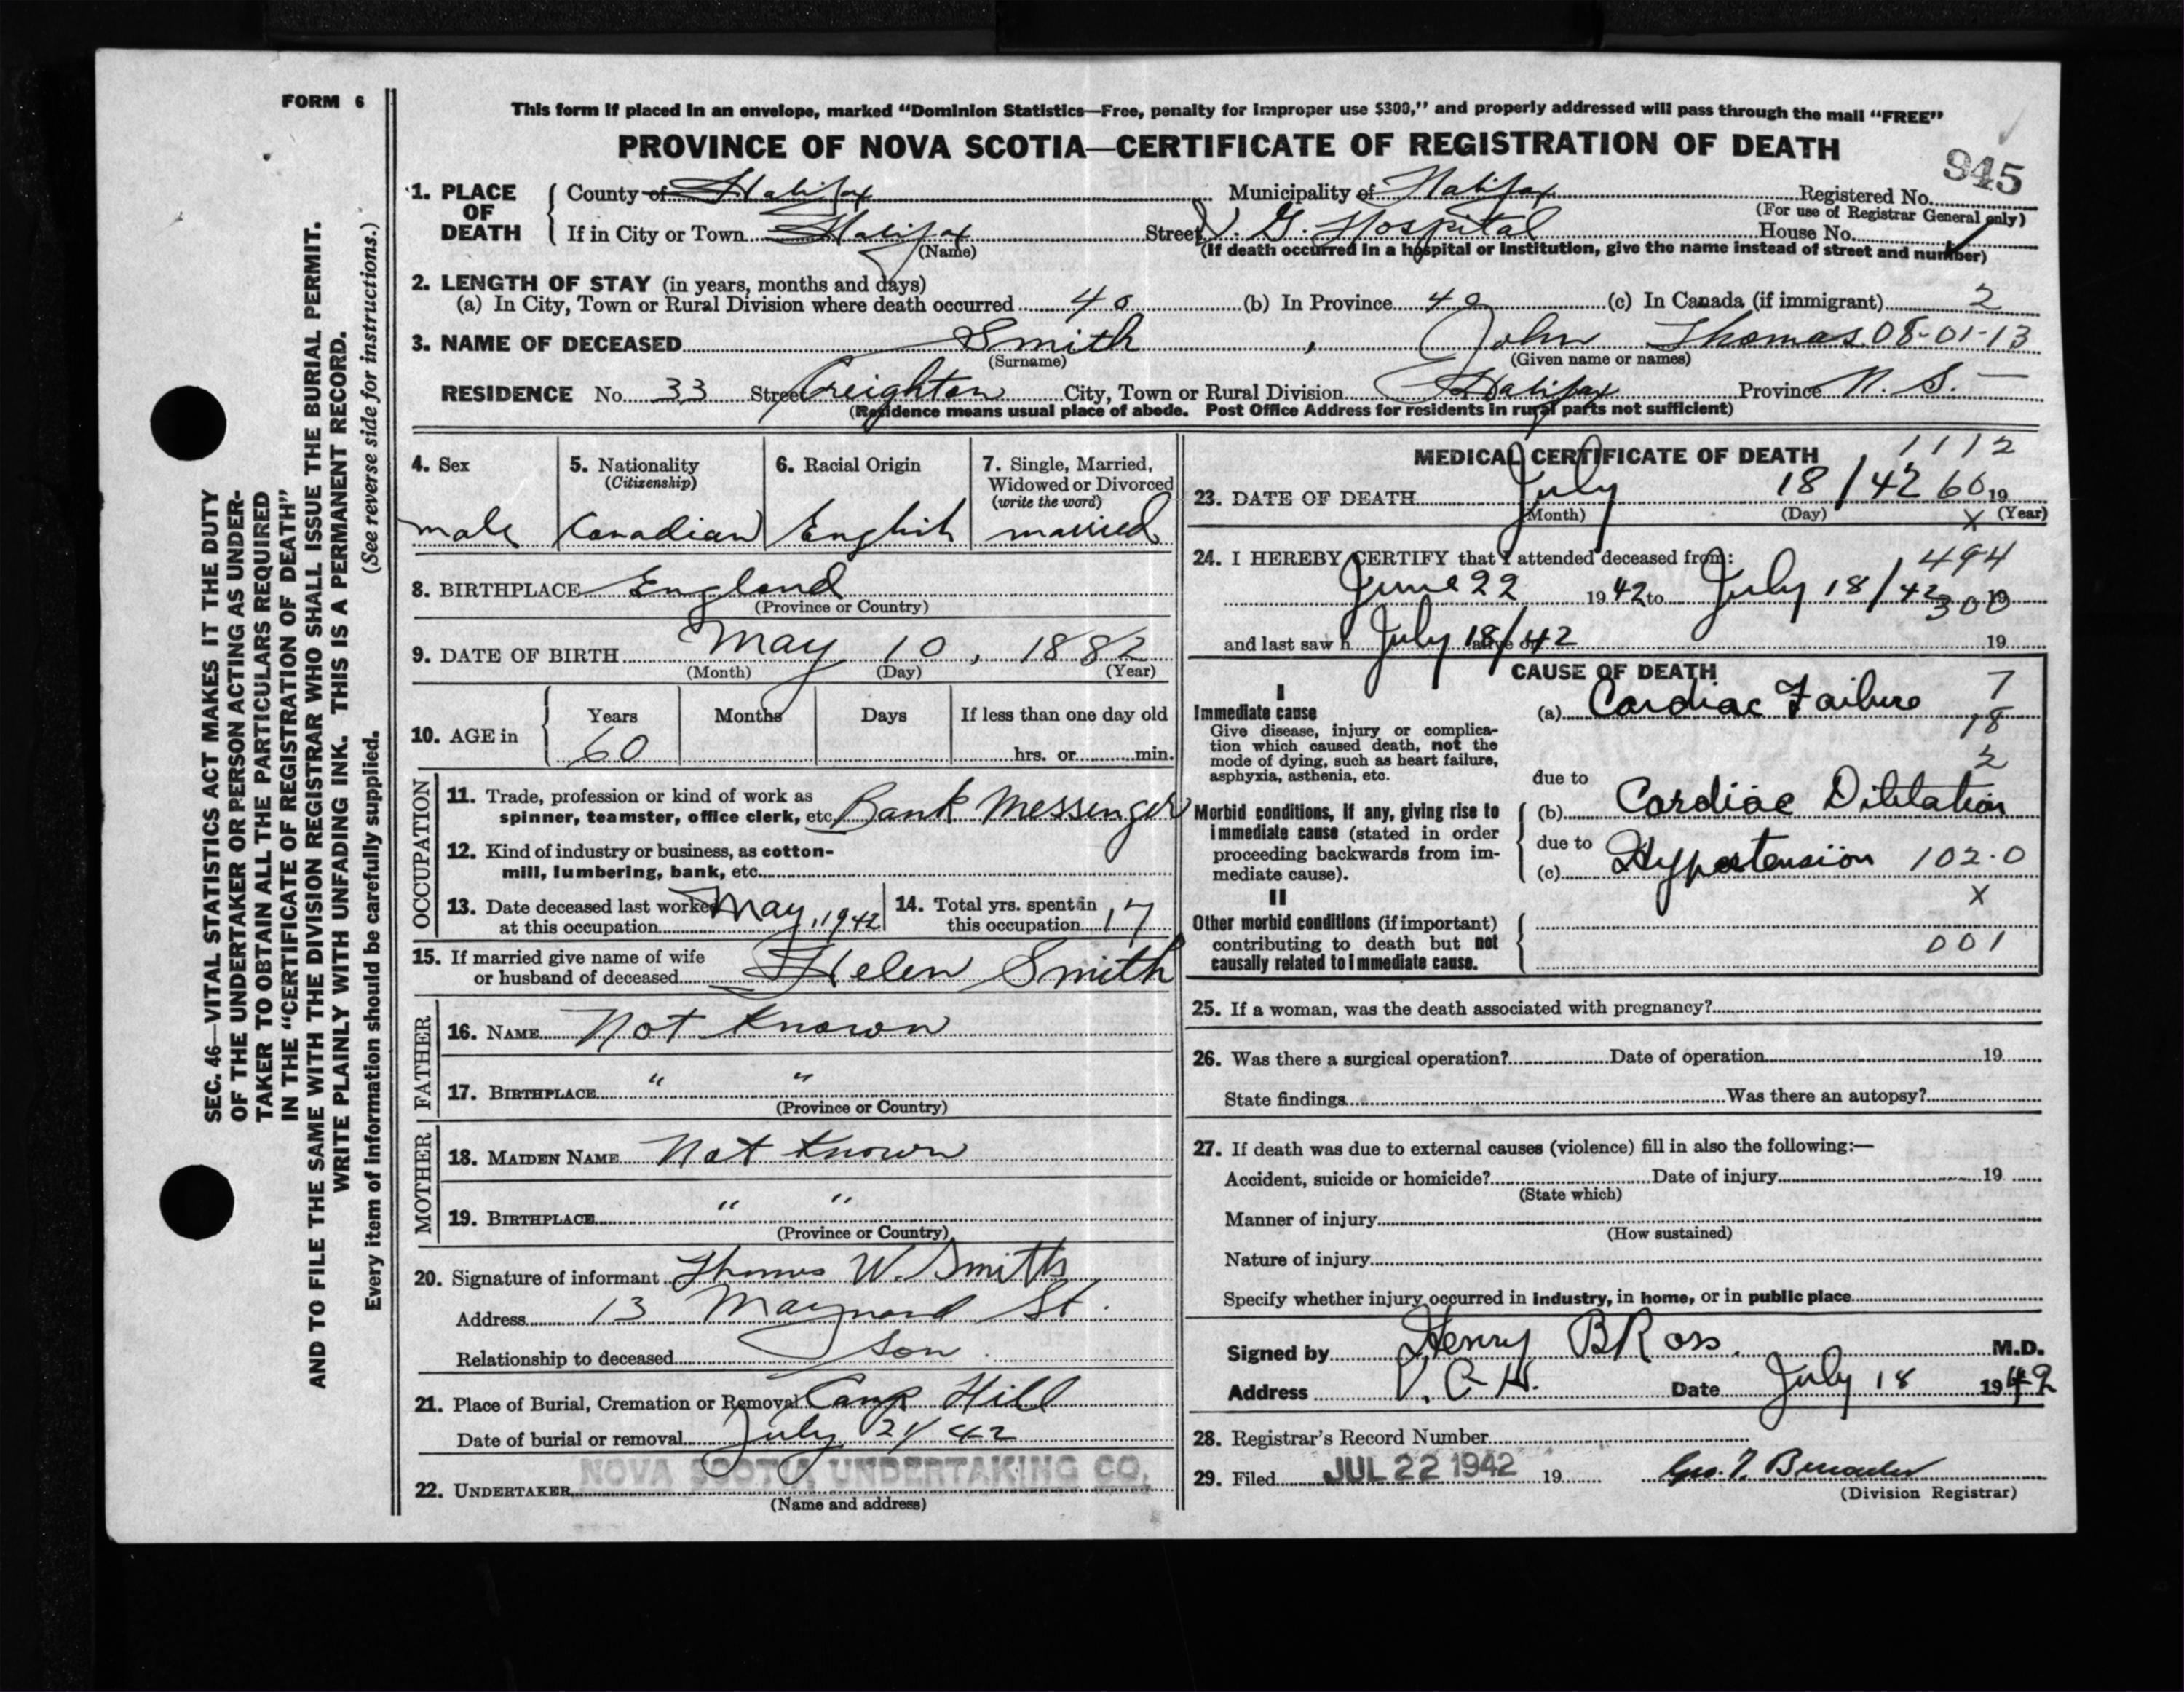 FORM 6
This form if placed in an envelope, marked “Dominion Statistics—Free, penalty for improper use $300,” and properly addressed will pass through the mail “FREE”
PROVINCE OF NOVA SCOTIA—CERTIFICATE OF REGISTRATION OF DEATH
945
1. PLACE OF DEATH County of Halifax Municipality of Halifax Registered No.
(For use of Registrar General only)
If in City or Town Halifax Street V. G. Hospital House No.
(Name) (If death occurred in a hospital or institution, give the name instead of street and number)
2. LENGTH OF STAY (in years, months and days)
(a) In City, Town or Rural Division where death occurred 40 (b) In Province 40 (c) In Canada (if immigrant) 2
3. NAME OF DECEASED Smith, John Thomas 08-01-13
(Surname) (Given name or names)
RESIDENCE No. 33 Street Creighton City, Town or Rural Division Halifax Province N. S. —
(Residence means usual place of abode. Post Office Address for residents in rural parts not sufficient)
4. Sex
male
5. Nationality
(Citizenship)
Canadian
6. Racial Origin
English
7. Single, Married,
Widowed or Divorced
(write the word)
married
8. BIRTHPLACE England
(Province or Country)
9. DATE OF BIRTH May 10, 1882
(Month) (Day) (Year)
10. AGE in Years Months Days If less than one day old
60 hrs. or min.
OCCUPATION
11. Trade, profession or kind of work as
spinner, teamster, office clerk, etc. Bank Messenger
12. Kind of industry or business, as cotton-
mill, lumbering, bank, etc.
13. Date deceased last worked
at this occupation May, 1942
14. Total yrs. spent in
this occupation 17
15. If married give name of wife
or husband of deceased Helen Smith
FATHER
16. NAME Not Known
17. BIRTHPLACE " "
(Province or Country)
MOTHER
18. MAIDEN NAME Not Known
19. BIRTHPLACE " "
(Province or Country)
20. Signature of informant Thomas W. Smith
Address 13 Maynard St.
Relationship to deceased Son
21. Place of Burial, Cremation or Removal Camp Hill
Date of burial or removal July 21/42
22. UNDERTAKER NOVA SCOTIA UNDERTAKING CO.
(Name and address)
MEDICAL CERTIFICATE OF DEATH 1112
23. DATE OF DEATH July 18/42 60 19
(Month) (Day) X (Year)
24. I HEREBY CERTIFY that I attended deceased from: 494
June 22 1942 to July 18/42 19 300
and last saw h July 18/42 alive on 19
CAUSE OF DEATH
I
Immediate cause (a) Cardiac Failure 7
Give disease, injury or complica-
tion which caused death, not the
mode of dying, such as heart failure,
asphyxia, asthenia, etc.
18
2
due to
Morbid conditions, if any, giving rise to
immediate cause (stated in order
proceeding backwards from im-
mediate cause).
(b) Cardiac Dilitation
due to
(c) Hypertension 102.0
X
II
Other morbid conditions (if important)
contributing to death but not
causally related to immediate cause.
001
25. If a woman, was the death associated with pregnancy?
26. Was there a surgical operation? Date of operation 19
State findings Was there an autopsy?
27. If death was due to external causes (violence) fill in also the following:—
Accident, suicide or homicide? Date of injury 19
(State which)
Manner of injury
(How sustained)
Nature of injury
Specify whether injury occurred in industry, in home, or in public place
Signed by Henry B Ross. M.D.
Address V. G. H. Date July 18 1942
28. Registrar's Record Number
29. Filed JUL 22 1942 19
(Division Registrar)
SEC. 46—VITAL STATISTICS ACT MAKES IT THE DUTY
OF THE UNDERTAKER OR PERSON ACTING AS UNDER-
TAKER TO OBTAIN ALL THE PARTICULARS REQUIRED
IN THE “CERTIFICATE OF REGISTRATION OF DEATH”
AND TO FILE THE SAME WITH THE DIVISION REGISTRAR WHO SHALL ISSUE THE BURIAL PERMIT.
WRITE PLAINLY WITH UNFADING INK. THIS IS A PERMANENT RECORD.
Every item of information should be carefully supplied. (See reverse side for instructions.)